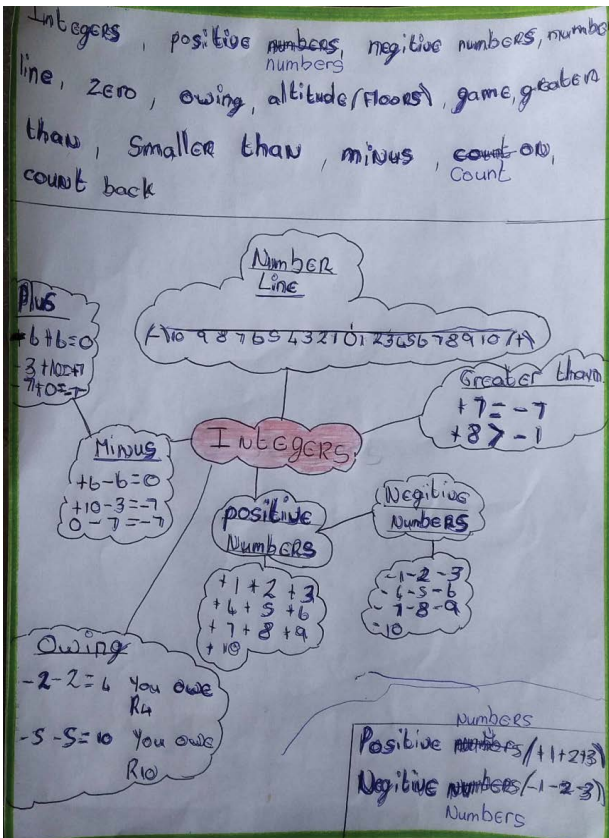 Integers, positive numbers, negitive numbers, numbe
numbers
line, Zero, owing, altitude/(Floors), game, greater
than, Smaller than, minus, count on,
Count
count back
Number
Line
(-) 10 9 8 7 6 5 4 3 2 1 0 1 2 3 4 5 6 7 8 9 10 (+)
Plus
-6+6=0
-3+10=+7
-7+0=-7
Greater than
+7=-7
+8>-1
Integers
Minus
+6-6=0
+10-3=-7
0-7=-7
positive
Numbers
Negitive
Numbers
+1+2+3
+4+5+6
+7+8+9
+10
-1-2-3
-4-5-6
-7-8-9
-10
Owing
-2-2=4 You owe
R4
-5-5=10 You owe
R10
Numbers
Positive numbers/(+1+2+3)
Negitive numbers/(-1-2-3)
Numbers